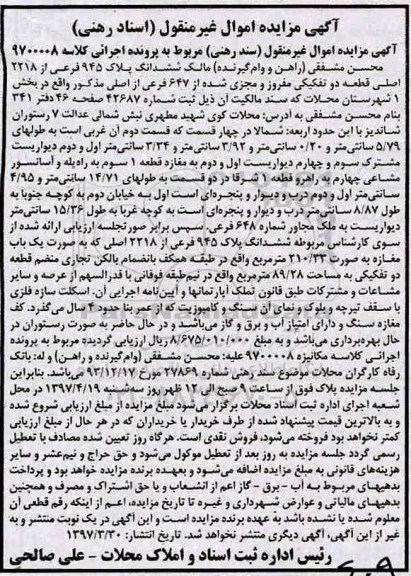 آگهی مزایده اموال غیرمنقول (اسناد رهنی)
آگهی مزایده اموال غیرمنقول (سند رهنی) مربوط به پرونده اجرائی کلاسه ۹۷۰۰۰۰۸
محسن مشفقی (راهن و وام‌گیرنده) مالک ششدانگ پلاک ۹۴۵ فرعی از ۲۲۱۸
اصلی قطعه دو تفکیکی مفروز و مجزی شده از ۶۴۷ فرعی از اصلی مذکور واقع در بخش
۱ شهرستان محلات که سند مالکیت آن ذیل ثبت شماره ۴۲۶۸۷ صفحه ۴۶ دفتر ۳۴۱
بنام محسن مشفقی به آدرس: محلات کوی شهید مطهری نبش شمالی عدالت ۷ رستوران
شاندیز با این حدود اربعه: شمالا در چهار قسمت که قسمت دوم آن غربی است به طولهای
۵/۷۹ سانتی‌متر و ۰/۲۰ سانتی‌متر و ۳/۹۲ سانتی‌متر و ۳/۳۴ سانتی‌متر اول و دوم دیواریست
مشترک سوم و چهارم دیواریست اول و دوم به مغازه قطعه ۱ سوم به راه‌پله و آسانسور
مشاعی چهارم به راهرو قطعه ۱ شرقا در دو قسمت به طولهای ۱۴/۷۱ سانتی‌متر و ۴/۹۵
سانتی‌متر اول و دوم درب و دیوار و پنجره‌ای است اول به خیابان دوم به کوچه جنوبا به
طول ۸/۸۷ سانتی‌متر درب و دیوار و پنجره‌ای است به کوچه غربا به طول ۱۵/۳۶ سانتی‌متر
دیواریست به ملک مجاور شماره ۶۴۸ فرعی. سپس برابر صورتجلسه ارزیابی ارائه شده از
سوی کارشناس مربوطه ششدانگ پلاک ۹۴۵ فرعی از ۲۲۱۸ اصلی که به صورت یک باب
مغازه به صورت ۲۱۰/۳۳ مترمربع واقع در طبقه همکف بانضمام بالکن تجاری منضم قطعه
دو تفکیکی به مساحت ۸۹/۲۸ مترمربع واقع در نیم‌طبقه فوقانی با قدرالسهم از عرصه و سایر
مشاعات و مشترکات طبق قانون تملک آپارتمانها و آیین‌نامه اجرایی آن. اسکلت سازه فلزی
با سقف تیرچه و بلوک و نمای آن سنگ و کامپوزیت که از عمر بنا حدود ۴ سال می‌گذرد. کف
مغازه سنگ و دارای امتیاز آب و برق و گاز می‌باشد و در حال حاضر به صورت رستوران در
حال بهره‌برداری می‌باشد و به مبلغ ۸/۶۷۵/۰۱۰/۰۰۰ ریال ارزیابی گردیده مربوط به پرونده
اجرائی کلاسه مکانیزه ۹۷۰۰۰۰۸ علیه: محسن مشفقی (وام‌گیرنده و راهن) و له: بانک
رفاه کارگران محلات موضوع سند رهنی شماره ۲۷۸۶۹ مورخ ۹۳/۱۲/۱۷ می‌باشد. بنابراین
جلسه مزایده پلاک فوق از ساعت ۹ صبح الی ۱۲ ظهر روز سه‌شنبه ۱۳۹۷/۴/۱۹ در محل
شعبه اجرای اداره ثبت اسناد محلات برگزار می‌شود مبلغ مزایده از مبلغ ارزیابی شروع شده
و به بالاترین قیمت پیشنهاد شده از طرف خریدار یا خریداران که در هر حال از مبلغ ارزیابی
کمتر نخواهد بود فروخته می‌شود، فروش نقدی است. هرگاه روز تعیین شده مصادف با تعطیل
رسمی گردد جلسه مزایده به روز بعد از تعطیل موکول می‌شود و حق حراج و نیم‌عشر و سایر
هزینه‌های قانونی به مبلغ مزایده اضافه می‌شود و بعهده برنده مزایده خواهد بود و پرداخت
بدهیهای مربوط به آب - برق - گاز اعم از انشعاب و یا حق اشتراک و مصرف و همچنین
بدهیهای مالیاتی و عوارض شهرداری و غیره تا تاریخ مزایده، اعم از اینکه رقم قطعی آن
معلوم شده یا نشده باشد به عهده برنده مزایده است و این آگهی در یک نوبت منتشر و به
غیر از این آگهی، آگهی دیگری منتشر نخواهد شد. تاریخ انتشار: ۱۳۹۷/۳/۳۰
رئیس اداره ثبت اسناد و املاک محلات - علی صالحی